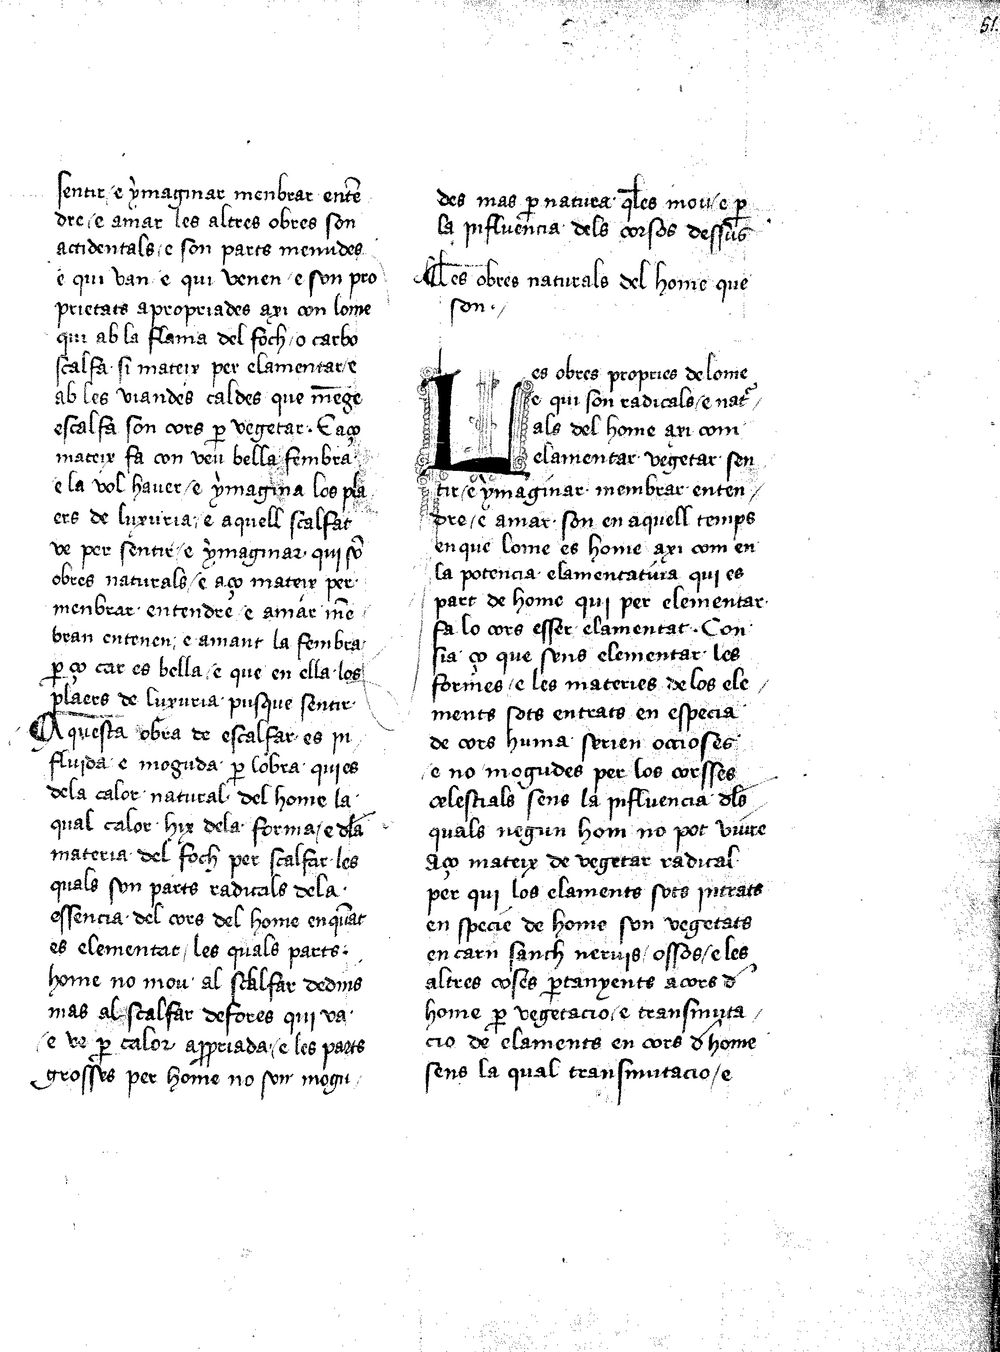 51.
sentir / e ẏmaginar menbrar entẽ
dre / e amar les altres obres son
accidentals / e son parts menudes
e qui van e qui venen / e son pro
prietats apropriades axi con lome
qui ab la flama del foch / o carbo
scalfa si mateix per elamentar / e
ab les viandes caldes que mẽge
escalfa son cors ꝑ vegetar · E aço
mateix fa con veu bella fembra
e la vol haver / e ẏmagina los pla
ers de luxuria / e aquell scalfar
ve per sentir / e ẏmaginar qui sõ
obres naturals / e aço mateix per
menbrar entendre / e amar mẽ
bran entenen / e amant la fembra
ꝑ ço car es bella / e que en ella los
plaers de luxuria pusque sentir
Aquesta obra de escalfar es in
fluida e moguda ꝑ lobra qui es
dela calor natural del home la
qual calor hix dela forma / e dła
materia del foch per scalfar les
quals son parts radicals dela
essencia del cors del home en quãt
es elementat / les quals parts ·
home no mou al scalfar dedins
mas al scalfar defores qui va
/ e ve ꝑ calor apꝓpriada / e les parts
grosses per home no son mogu /
des mas ꝑ natura q̃les mou / e ꝑ
la influencia dels corsos dessus
Les obres naturals del home que
son · /
Les obres propries de lome
e qui son radicals / e nat̃ /
als del home axi com
elamentar vegetar sen
tir / e ẏmaginar membrar enten /
dre / e amar son en aquell temps
en que lome es home axi com en
la potencia elamentatiua qui es
part de home qui per elementar
fa lo cors esser elamentat · Con
sia ço que sens elementar les
formes / e les materies de los ele /
ments sots entrats en especia
de cors huma serien occioses
/ e no mogudes per los corsses
celestials sens la influencia dłs
quals negun hom no pot viure
Aço mateix de vegetar radical
per qui los elaments sots intrats
en specie de home son vegetats
en carn sanch nervis / ossos / e les
altres coses ꝑtanyents a cors d̉
home ꝑ vegetacio / e transmuta /
cio de elaments en cors d̉ home
sens la qual transmutacio / e